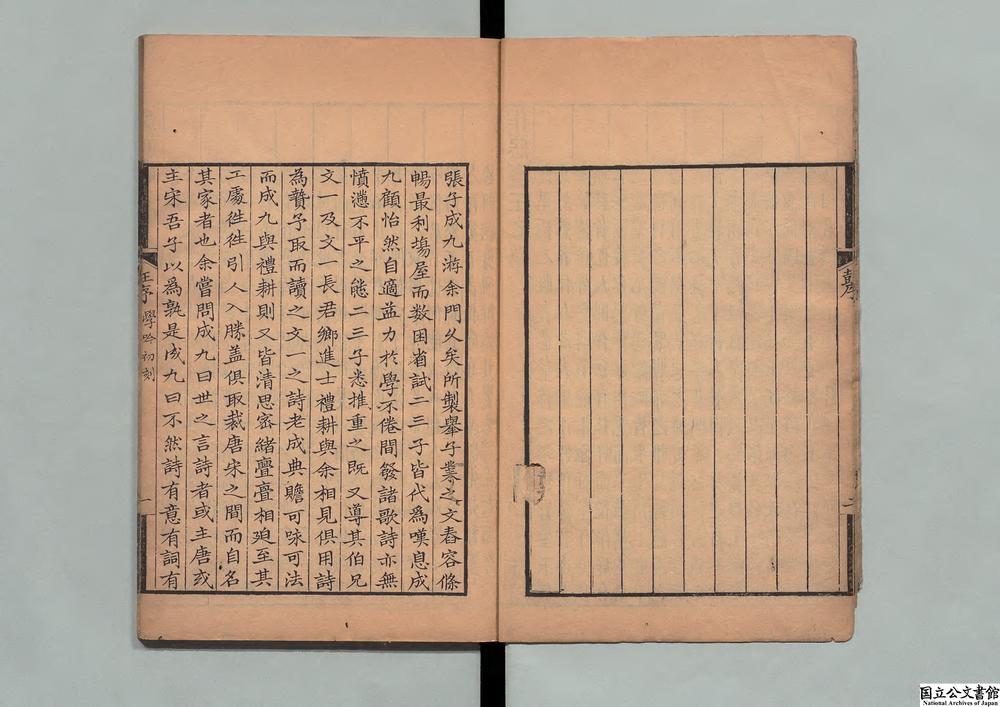 張子成九游余門久矣所製舉子業之文舂容條
暢最利塲屋而数困省試二三子皆代為嘆息成
九顧怡然自適益力於學不倦間發諸歌詩亦無
憤懣不平之態二三子悉推重之既又導其伯兄
文一及文一長君鄉進士禮耕與余相見俱用詩
為贄予取而讀之文一之詩老成典贍可詠可法
而成九與禮耕則又皆清思宻緒亹亹相廹至其
工處徃徃引人入勝盖俱取裁唐宋之間而自名
其家者也余嘗問成九曰世之言詩者或主唐或
主宋吾子以為孰是成九曰不然詩有意有詞有
王序 學吟初刻 一
国立公文書館
National Archives of Japan